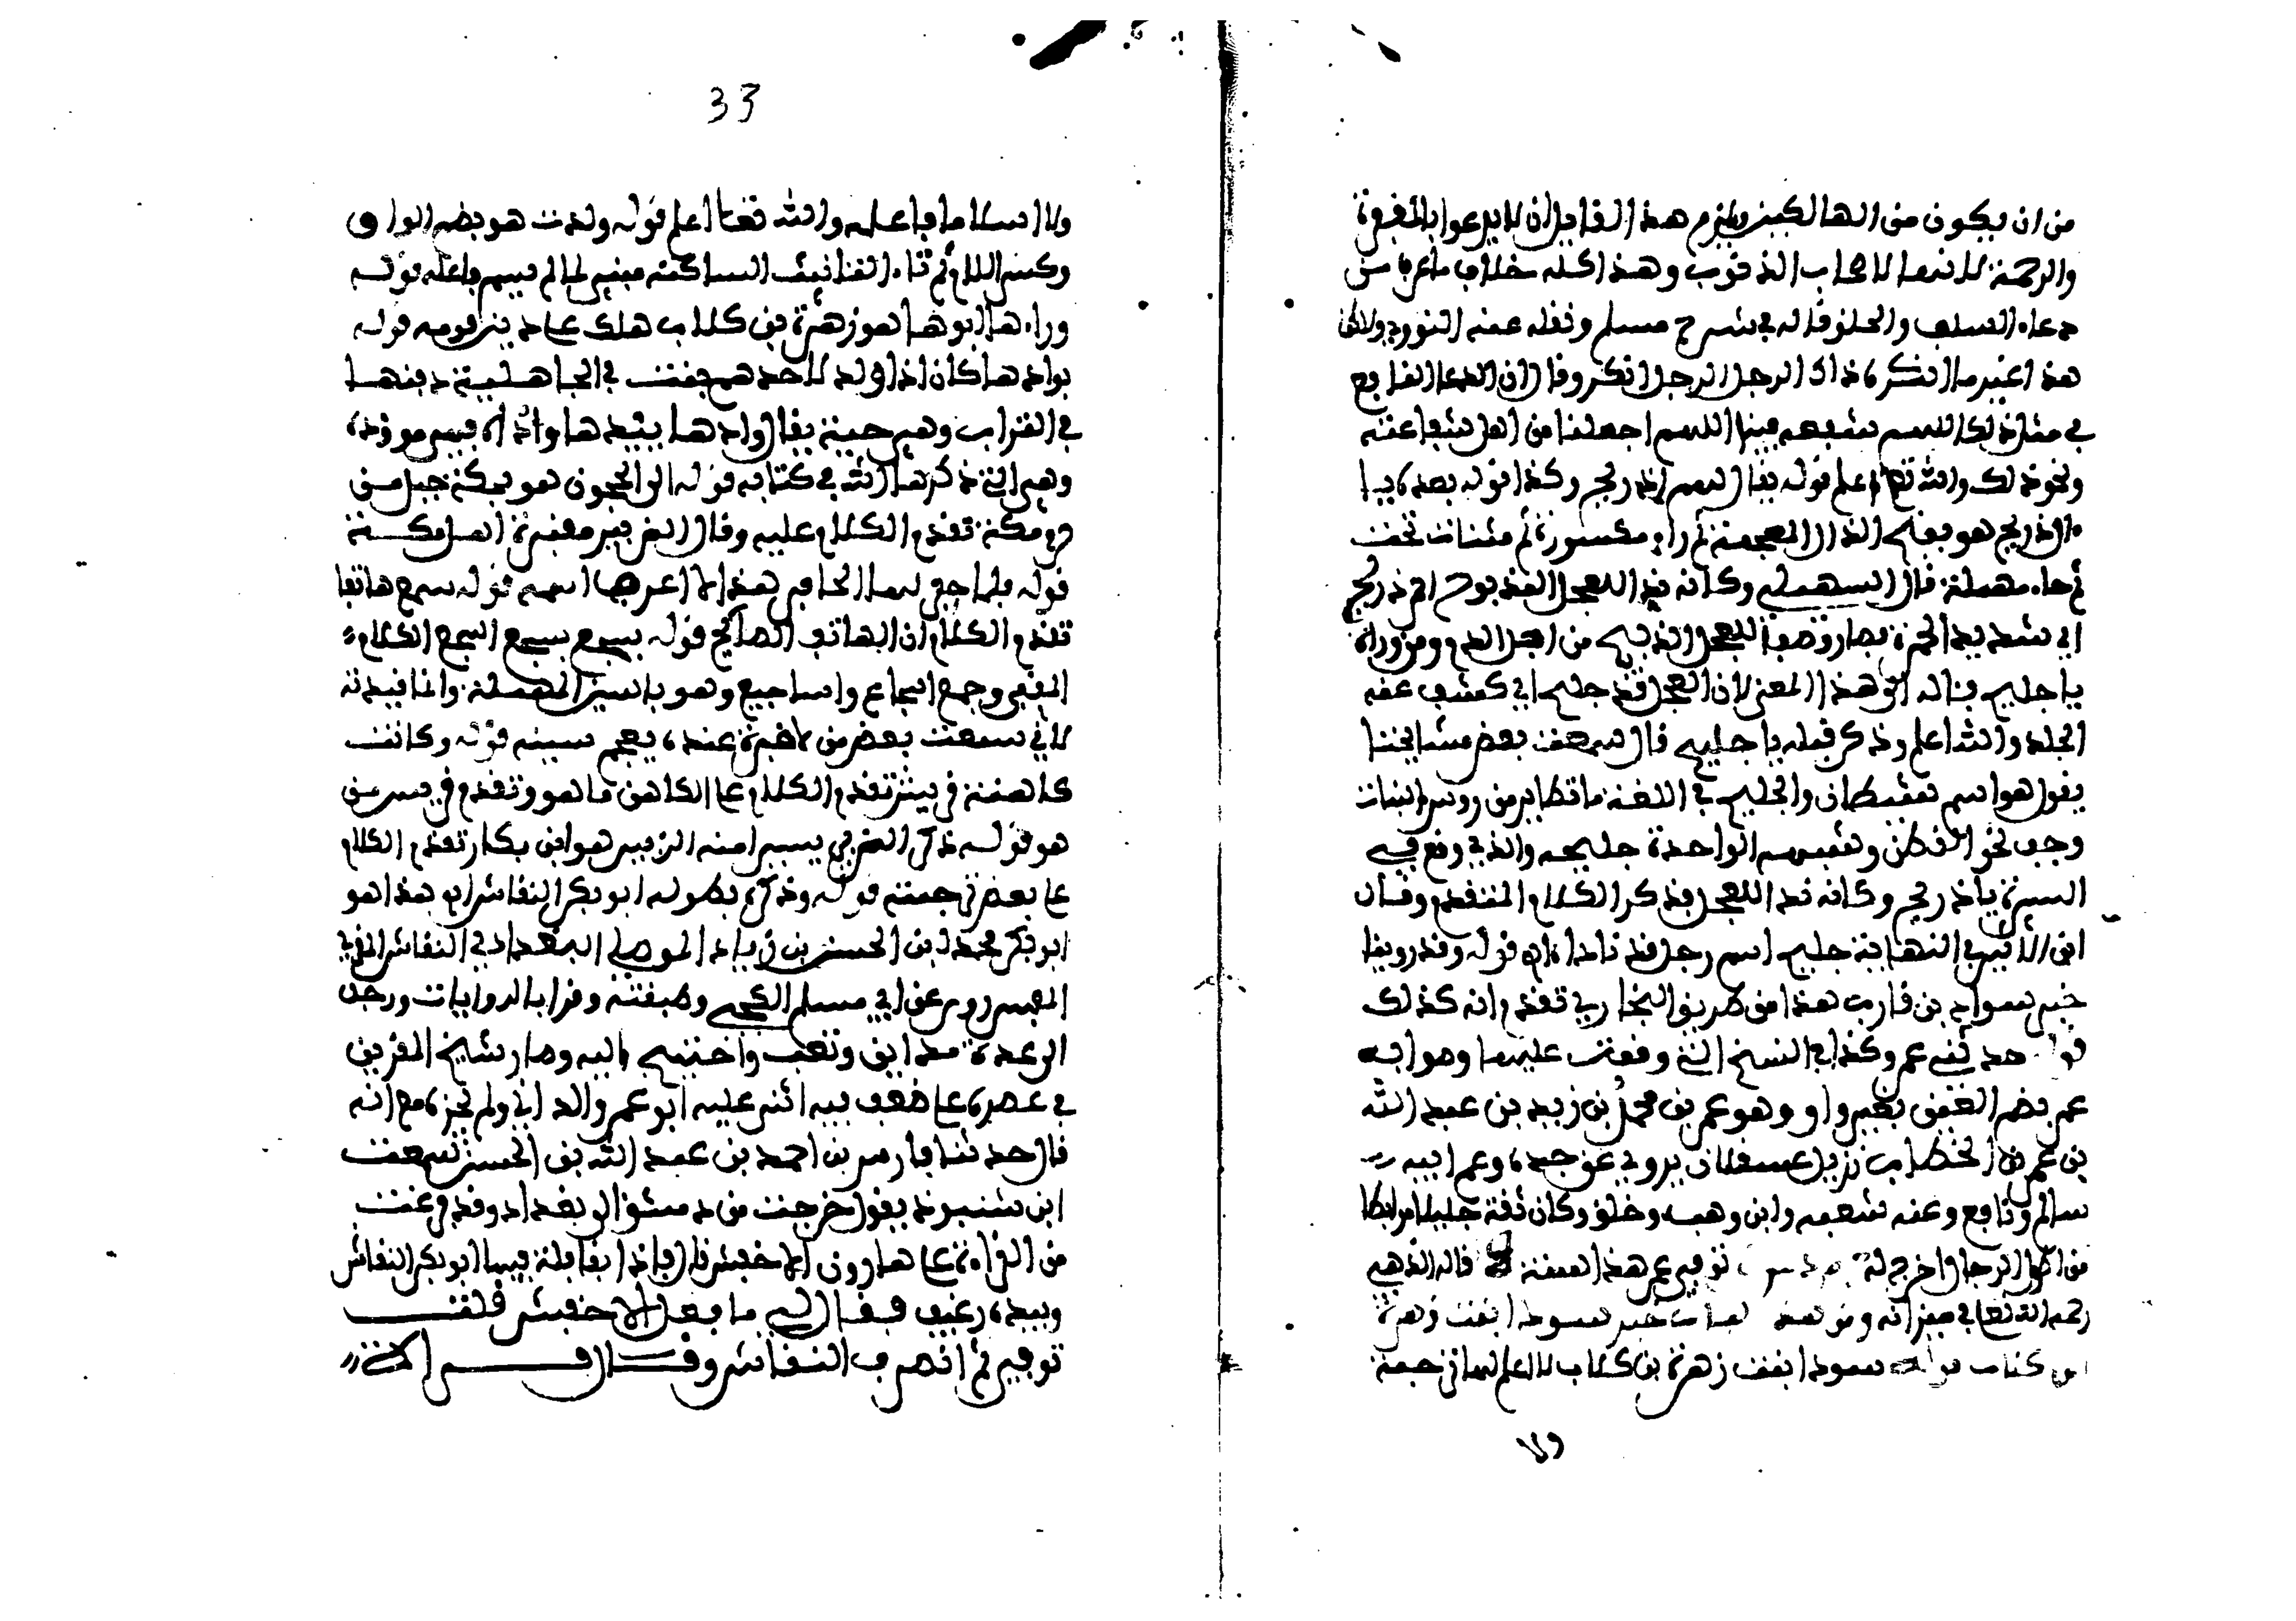 من ان يكون من الهالكين ويلزم هذا القايل ان لا يدعوا بالمغفرة
والرحمة لانها لاصحاب الذنوب وهذا كله خلاف ما عرف من
دعاء السلف والخلف قاله في شرح مسلم ونقله عنه النووي ولاكن
هذا غير ما انكره ذاك الرجل الرجل انكر وقال ان الدعا النافع
في مثل ذلك اللهم شفعه فينا اللهم اجعلنا من اهل شفاعته
ونحو ذلك والله تعلى اعلم قوله يقال لهم ال ذريح وكذا قوله بعده يا
ال ذريح هو بفتح الذال المعجمة ثم راء مكسورة ثم مثنات تحت
ثم حاء مهملة قال السهيلي وكانه نداء للعجل المذبوح احمر ذريحي
اي شديد الحمرة فصار وصفا للعجل الذبيح من اجل الدم ومن رواه
يا جليح فماله الى هذا المعنى لان العجل قد جلح اي كشف عنه
الجلد والله اعلم وذكر قبله يا جليح قال سمعت بعض مشايخنا
يقول هو اسم شيطان والجليح في اللغة ما تطاير من روس النبات
وخف نحو القطن وشبهه الواحدة جليحه والذي وقع في
السيرة يا ذريح وكانه نداء للعجل فذكر الكلام المتقدم وقال
ابن الاثير في النهاية جليح اسم رجل قد ناداه قوله وقد روينا
خبر سواد بن قارب هذا من طريق البخاري تقدم انه كذلك
قوله حدثني عمرو كذا في النسخ التي وقفت عليها وصوابه
عمر بضم العين بغير واو وهو عمر بن محمد بن زيد بن عبد الله
بن عمر بن الخطاب نزيل عسقلان يروي عن جده وعم ابيه
سالم ونافع وعنه شعبه وابن وهب وخلق وكان ثقة جليلا مرابطا
من اطول الرجال اخرج له توفي عمر هذا سنة قاله الذهبي
رحمه الله تعالى في ميزانه خبر سودا بنت زهرة
بن كلاب قوله سودا بنت زهرة بن كلاب لا اعلم لها ترجمة
ولا
33
ولا اسلاما فاعلمه والله تعالى اعلم قوله ولدت هو بضم الواو
وكسر اللام ثم تاء التانيث الساكنة مبني لما لم يسم فاعله قوله
وراءها ابوها هو زهرة بن كلاب هلك على دين قومه قوله
بوادها كان اذا ولد لاحدهم بنت في الجاهلية دفنها
في التراب وهي حية يقال وادها يئدها وادا فهي موؤدة
وهي التي ذكرها الله في كتابه قوله الى الحجون هو بمكة جبل من
مكة تقدم الكلام عليه وقال العزيزي مقبرة اهل مكة
قوله فلما حفر لها الحافر هذا لا اعرف اسمه قوله سمع هاتفا
تقدم الكلام ان الهاتف الصائح قوله بسجع بسجع السجع الكلام
المقفى وجمع اسجاع واساجيع وهو بالسين المهملة وانما قيدته
لاني سمعت بعض من لا خبرة عنده يعجم سينه قوله وكانت
كاهنة قريش تقدم الكلام على الكاهن ما هو وتقدم قريش من
هو قوله ذكره الزبير هو ابن بكار تقدم الكلام
على بعض ترجمته قوله وذكره بطوله ابو بكر النقاش هذا هو
ابو بكر محمد بن الحسن بن زياد الموصلي البغدادي النقاش المقرئ
المفسر روى عن ابي مسلم الكجي وطبقته وقرا بالروايات ورحل
الى عدة مداين وتعب واحتيج اليه وصار شيخ المقرين
في عصره على ضعف فيه اثنى عليه ابو عمرو الداني ولم يخبره مع انه
قال حدثنا فارس بن احمد بن عبد الله بن الحسين سمعت
ابن شنبوذ يقول خرجت من دمشق الى بغداد وقد فرغت
من القراة على هارون الاخفش فاذا بقافلة فيها ابو بكر النقاش
وبيده رغيف فقال لي ما فعل الاخفش قلت
توفي ثم انصرف النقاش وقال قرات